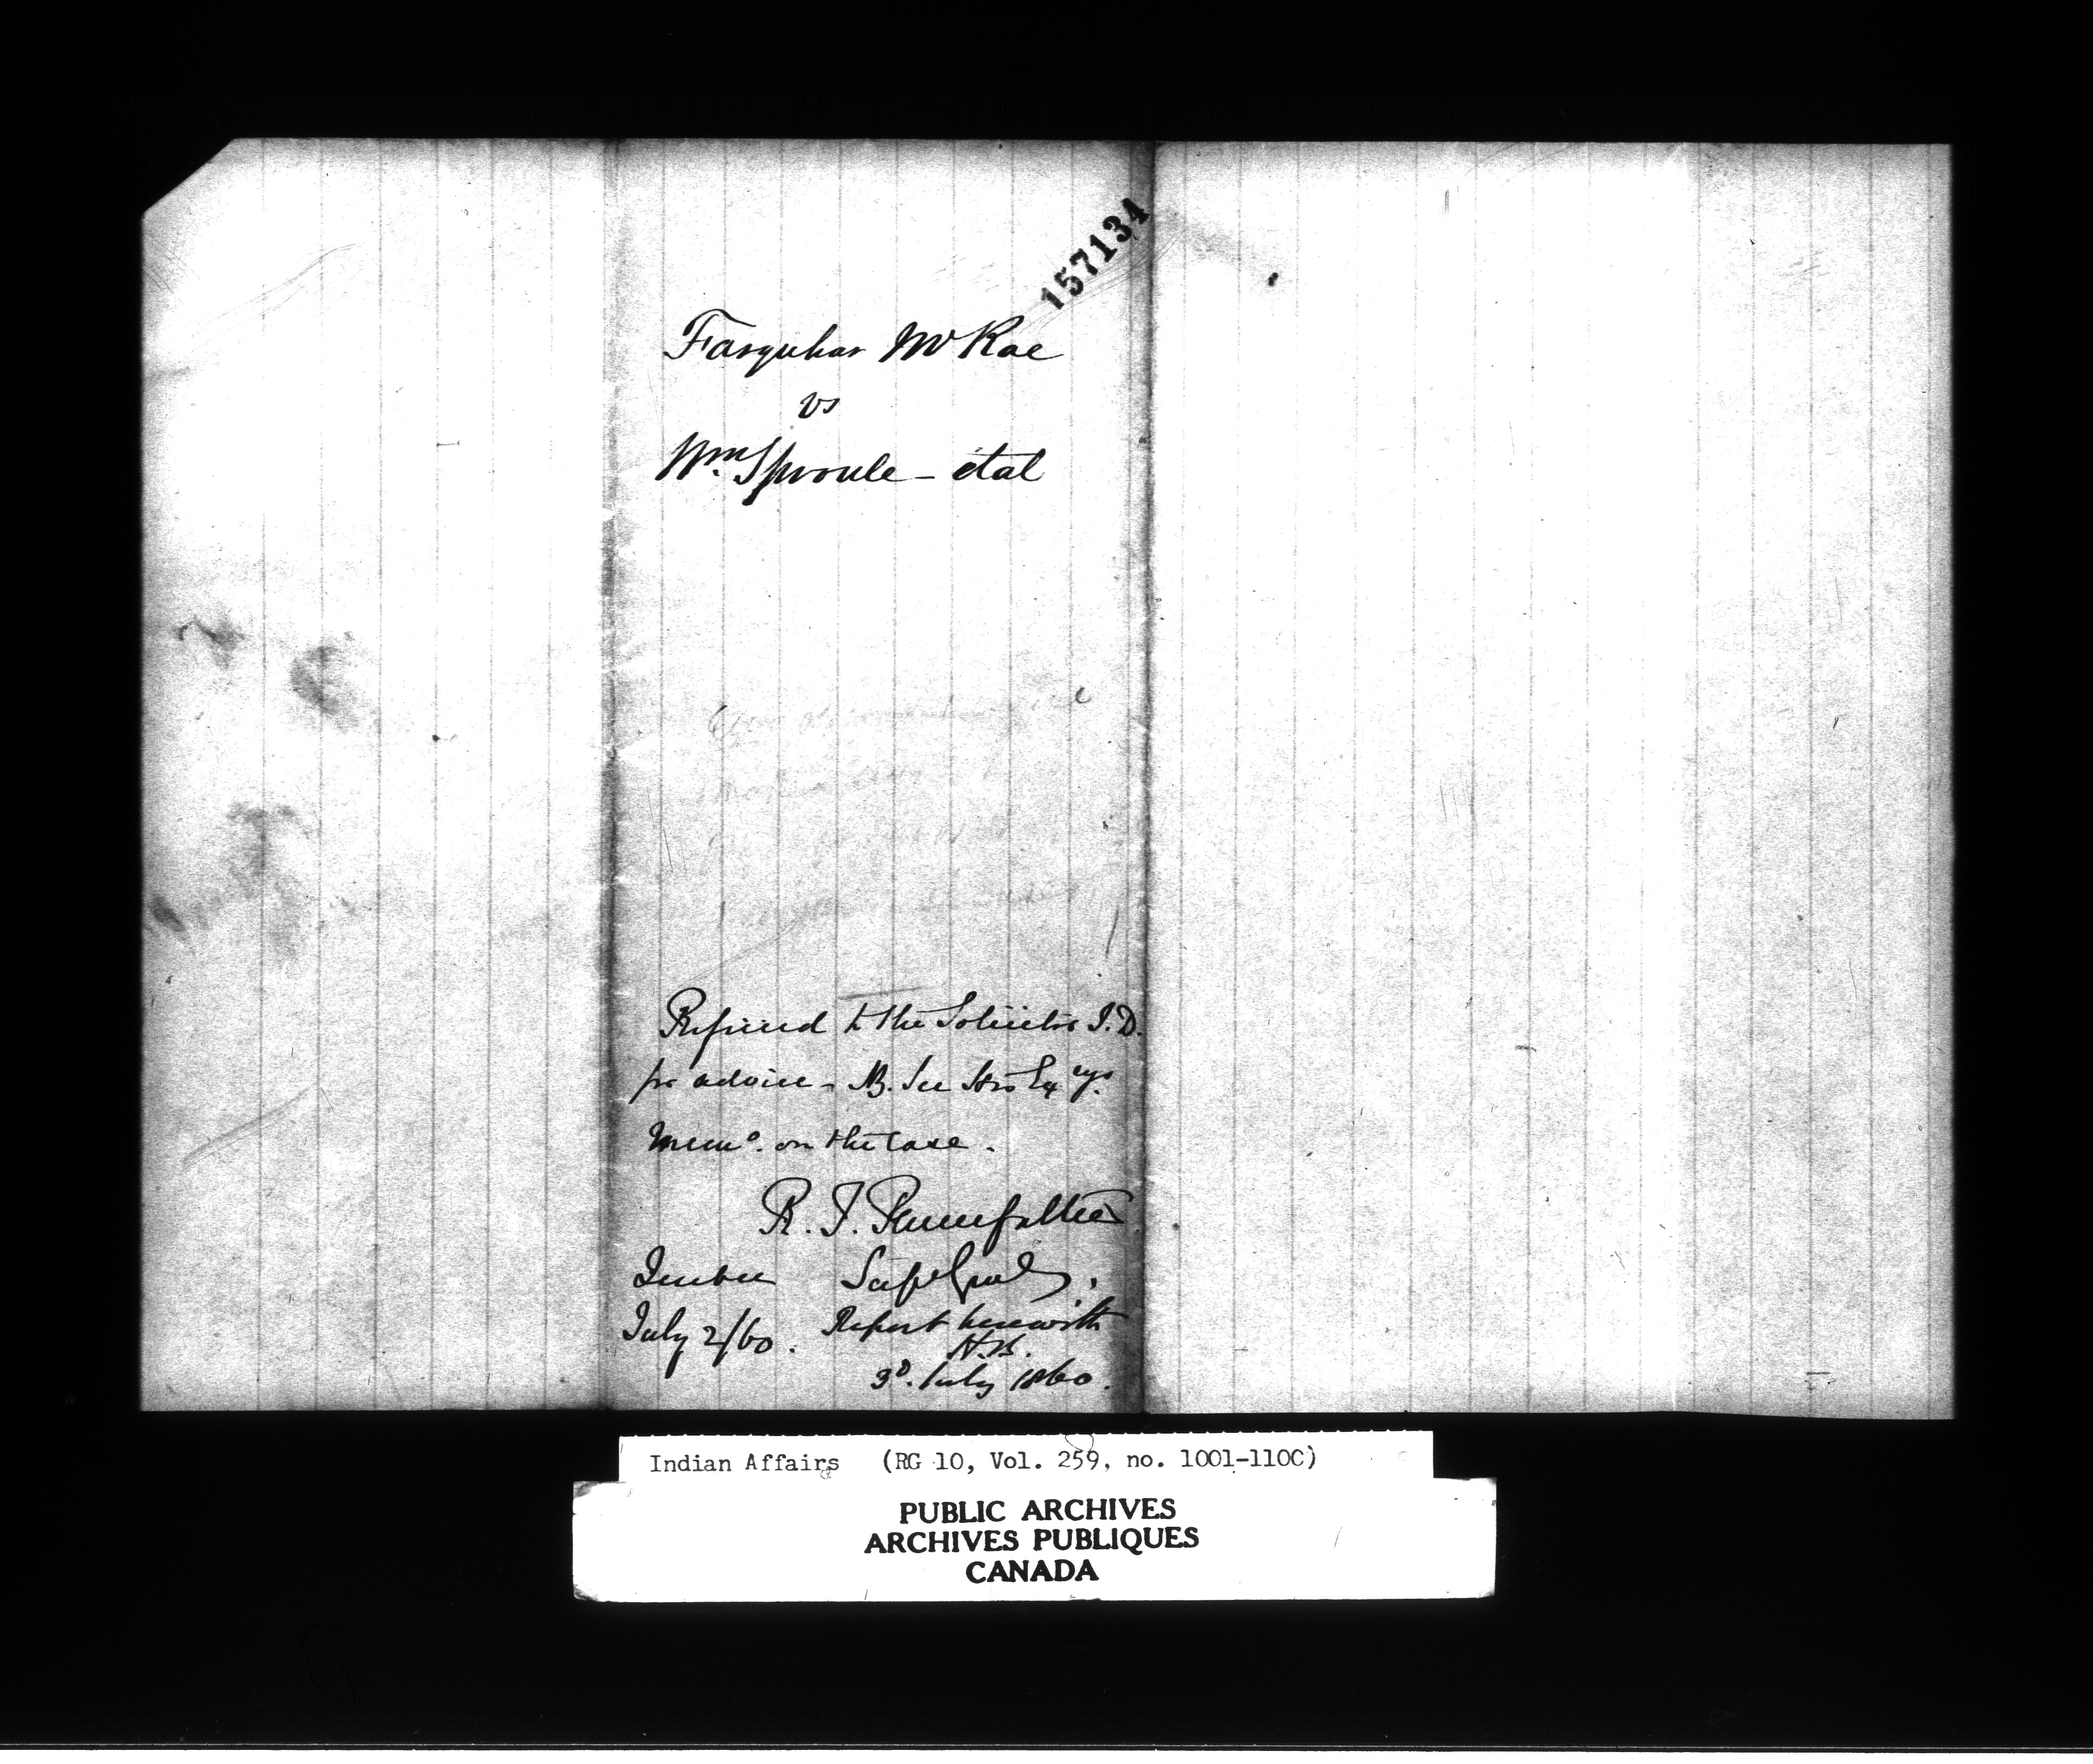 157134
Farquhar McRae
vs
Wm. Sproule - etal
Referred to the Solicitor I.D.
for advice - NB. See His Excys.
Memo. on the case.
R. T. Pennefather
Quebec Supt Genl,
July 2/60. Report herewith
H.B.
3d. July 1860.
Indian Affairs (RG 10, Vol. 259, no. 1001-110C)
PUBLIC ARCHIVES
ARCHIVES PUBLIQUES
CANADA